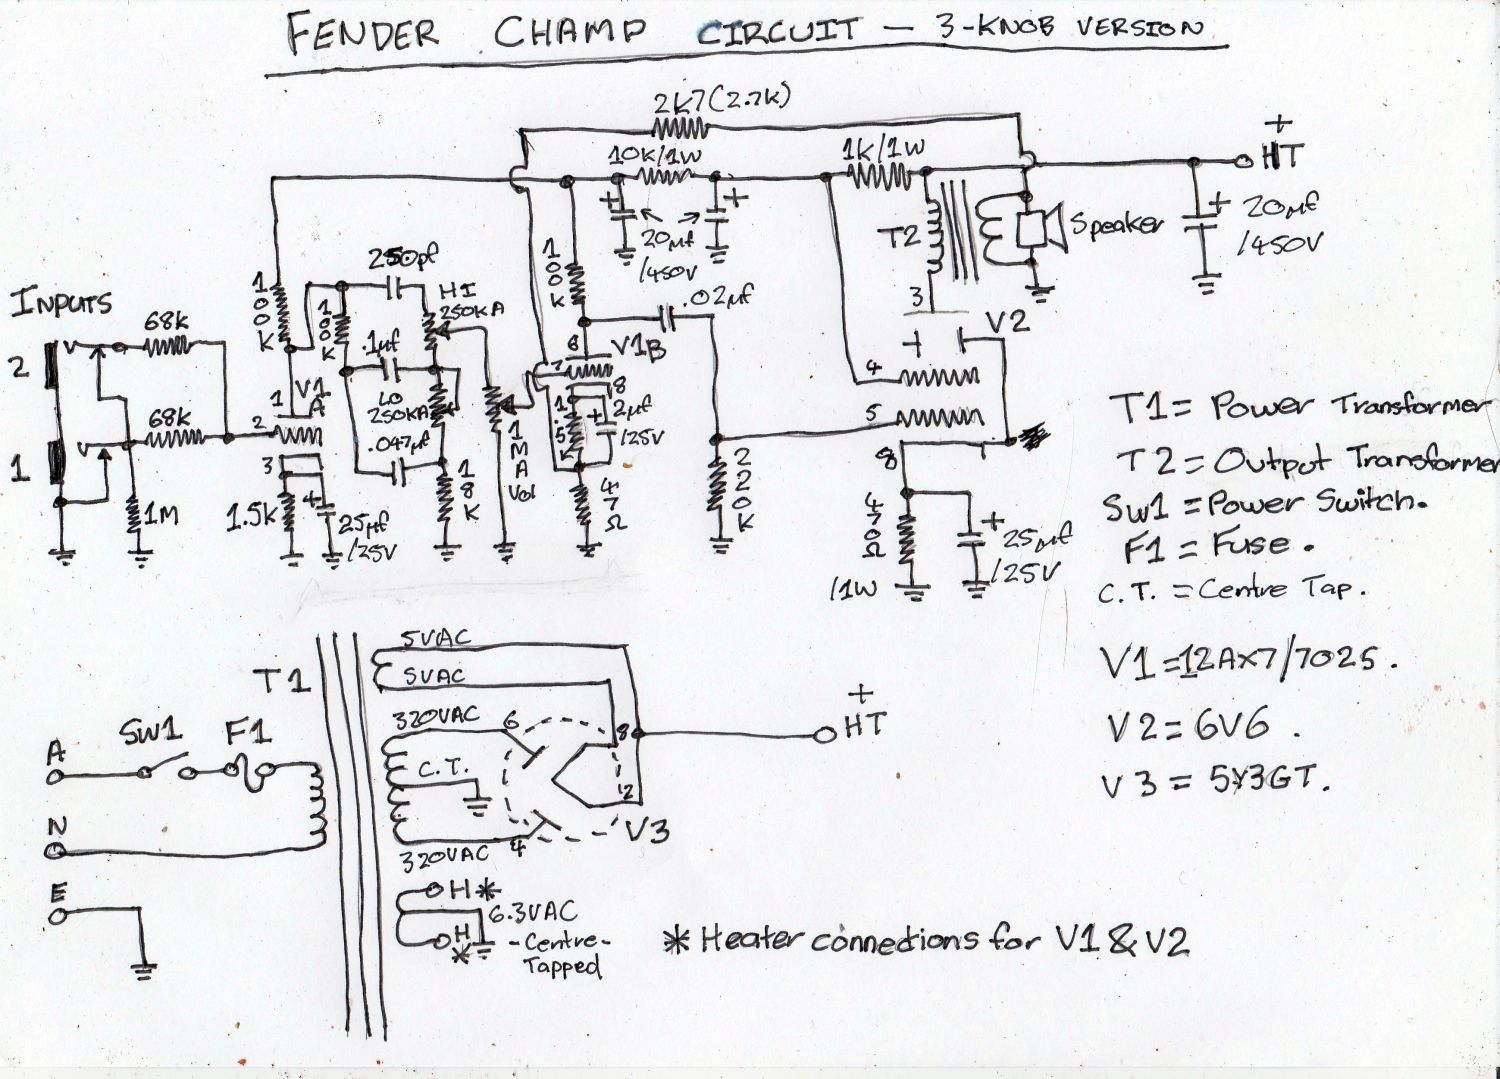 FENDER CHAMP CIRCUIT — 3-KNOB VERSION
2K7 (2.7K)
10K/1W
1K/1W
+
HT
+
+
20µf
/450V
100K
T2
Speaker
+
20µf
/450V
INPUTS
2
1
68K
68K
1M
100K
100K
250pf
HI
250KA
.1µf
LO
250KA
.047µf
18K
1
V1A
2
3
1.5K
+
25µf
/25V
1MA
Vol
.02µf
6
V1B
7
8
1.5K
+
2µf
/25V
47Ω
220K
3
V2
4
5
8
470Ω
/1W
+
25µf
/25V
T1 = Power Transformer
T2 = Output Transformer
SW1 = Power Switch.
F1 = Fuse.
C.T. = Centre Tap.
V1 = 12AX7/7025.
V2 = 6V6.
V3 = 5Y3GT.
T1
5VAC
5VAC
320VAC
6
8
+
HT
C.T.
2
V3
320VAC
4
A
SW1
F1
N
E
H *
H
*
6.3VAC
-Centre-
Tapped
* Heater connections for V1 & V2